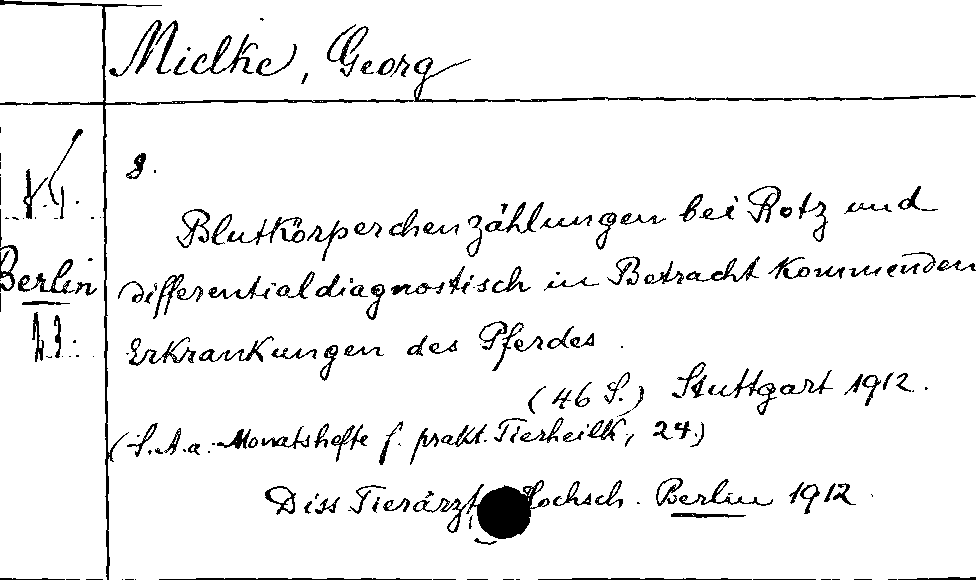 Mielke, Georg
8.
Berlin
Blutkörperchenzählungen bei Rotz und
differentialdiagnostisch in Betracht kommenden
Erkrankungen des Pferdes.
(46 S.) Stuttgart 1912.
(S.A.a. Monatshefte f. prakt. Tierheilk, 24.)
Diss Tierärztl Hochsch. Berlin 1912